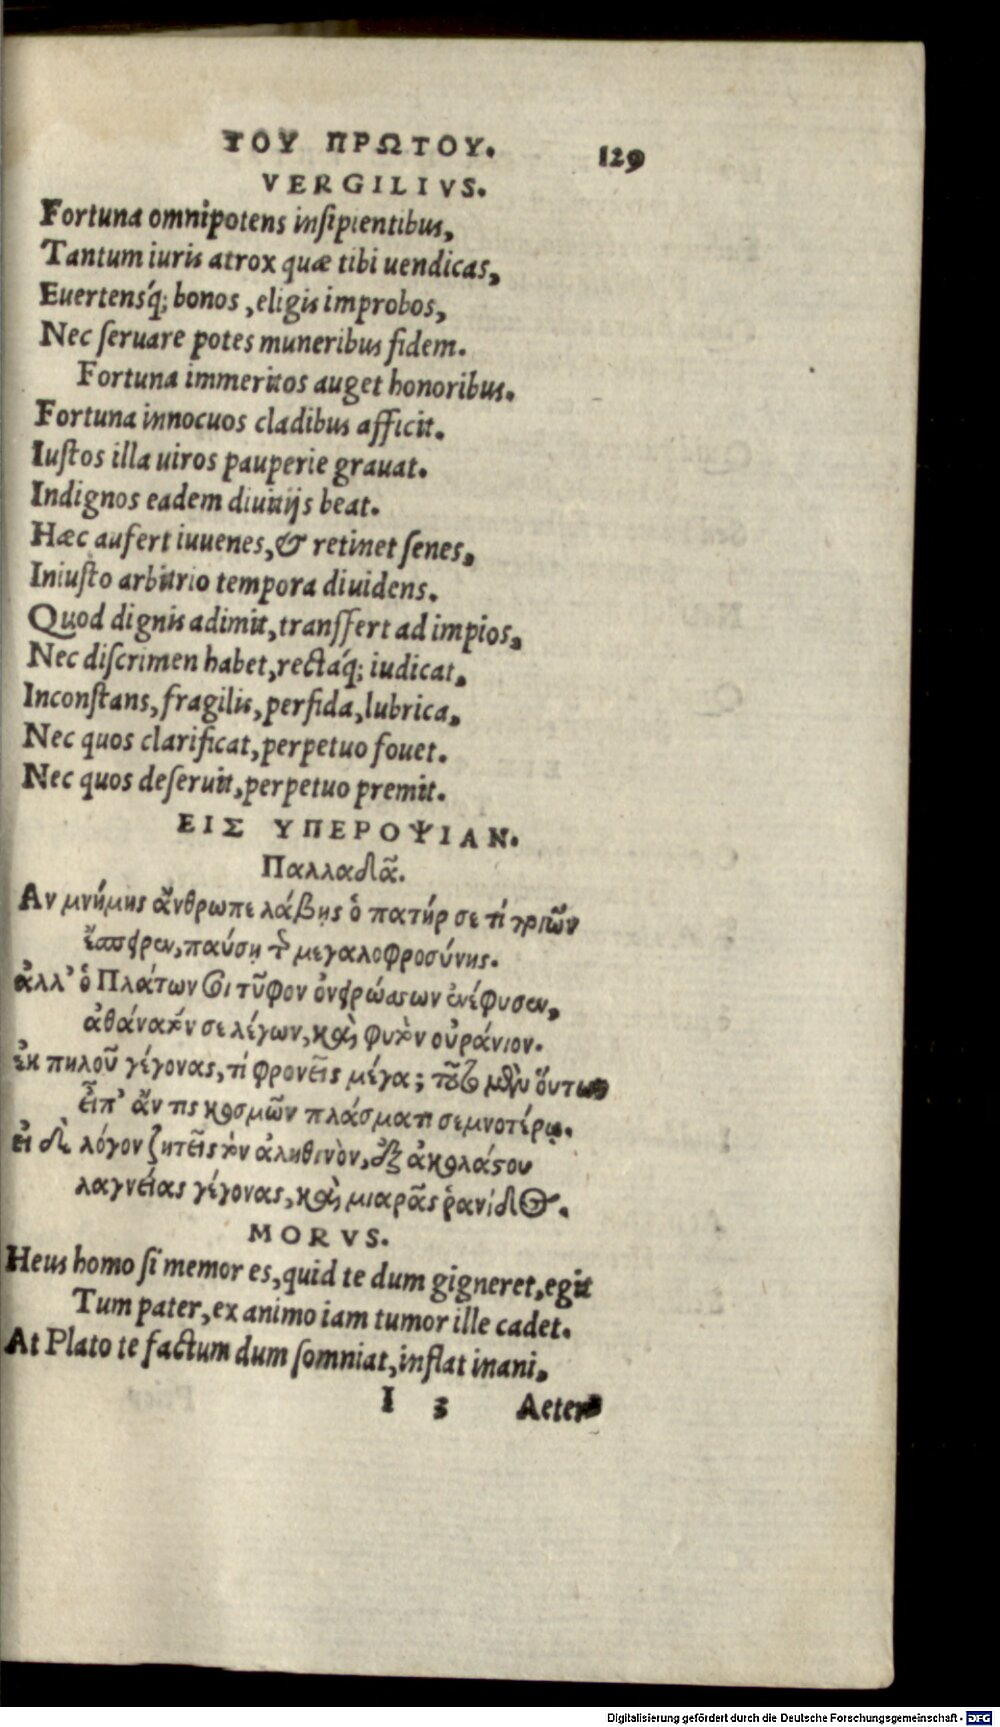 ΤΟΥ ΠΡΩΤΟΥ. 129
VERGILIVS.
Fortuna omnipotens insipientibus,
Tantum iuris atrox quæ tibi uendicas,
Euertensq́; bonos, eligis improbos,
Nec seruare potes muneribus fidem.
Fortuna immeritos auget honoribus.
Fortuna innocuos cladibus afficit.
Iustos illa uiros pauperie grauat.
Indignos eadem diuitijs beat.
Hæc aufert iuuenes, & retinet senes,
Iniusto arbitrio tempora diuidens.
Quod dignis adimit, transfert ad impios,
Nec discrimen habet, rectáq; iudicat,
Inconstans, fragilis, perfida, lubrica,
Nec quos clarificat, perpetuo fouet.
Nec quos deseruit, perpetuo premit.
ΕΙΣ ΥΠΕΡΟΨΙΑΝ.
Παλλαδᾶ.
Αν μνήμης ἄνθρωπε λάβῃς ὁ πατήρ σε τί ποιῶν
ἔσπειρεν, παύσῃ τ̃ μεγαλοφροσύνης.
ἀλλ’ ὁ Πλάτων σοι τῦφον ὀνειρώσσων ἐνέφυσεν,
ἀθάνατόν σε λέγων, καὶ φυτὸν οὐράνιον.
ἐκ πηλοῦ γέγονας, τί φρονεῖς μέγα; τοῦτο μὲν οὕτως
εἶπ’ ἄν τις κοσμῶν πλάσματι σεμνοτέρῳ.
εἰ δὲ λόγον ζητεῖς τὸν ἀληθινὸν, ἐξ ἀκολάστου
λαγνείας γέγονας, καὶ μιαρᾶς ῥανίδος.
MORVS.
Heus homo si memor es, quid te dum gigneret, egit
Tum pater, ex animo iam tumor ille cadet.
At Plato te factum dum somniat, inflat inani,
I 3 Aeter-
Digitalisierung gefördert durch die Deutsche Forschungsgemeinschaft - DFG